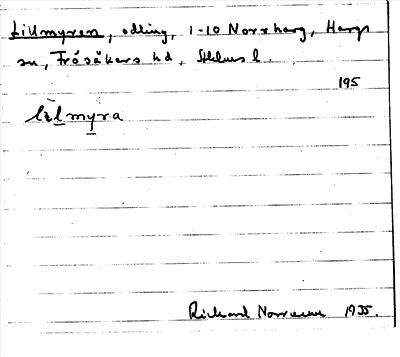 Lillmyren, odling, 1-10 Norrharg, Hargs
sn, Frösåkers hd, Sthlms l.
195
lìlmyra
Richard Norrman 1935.